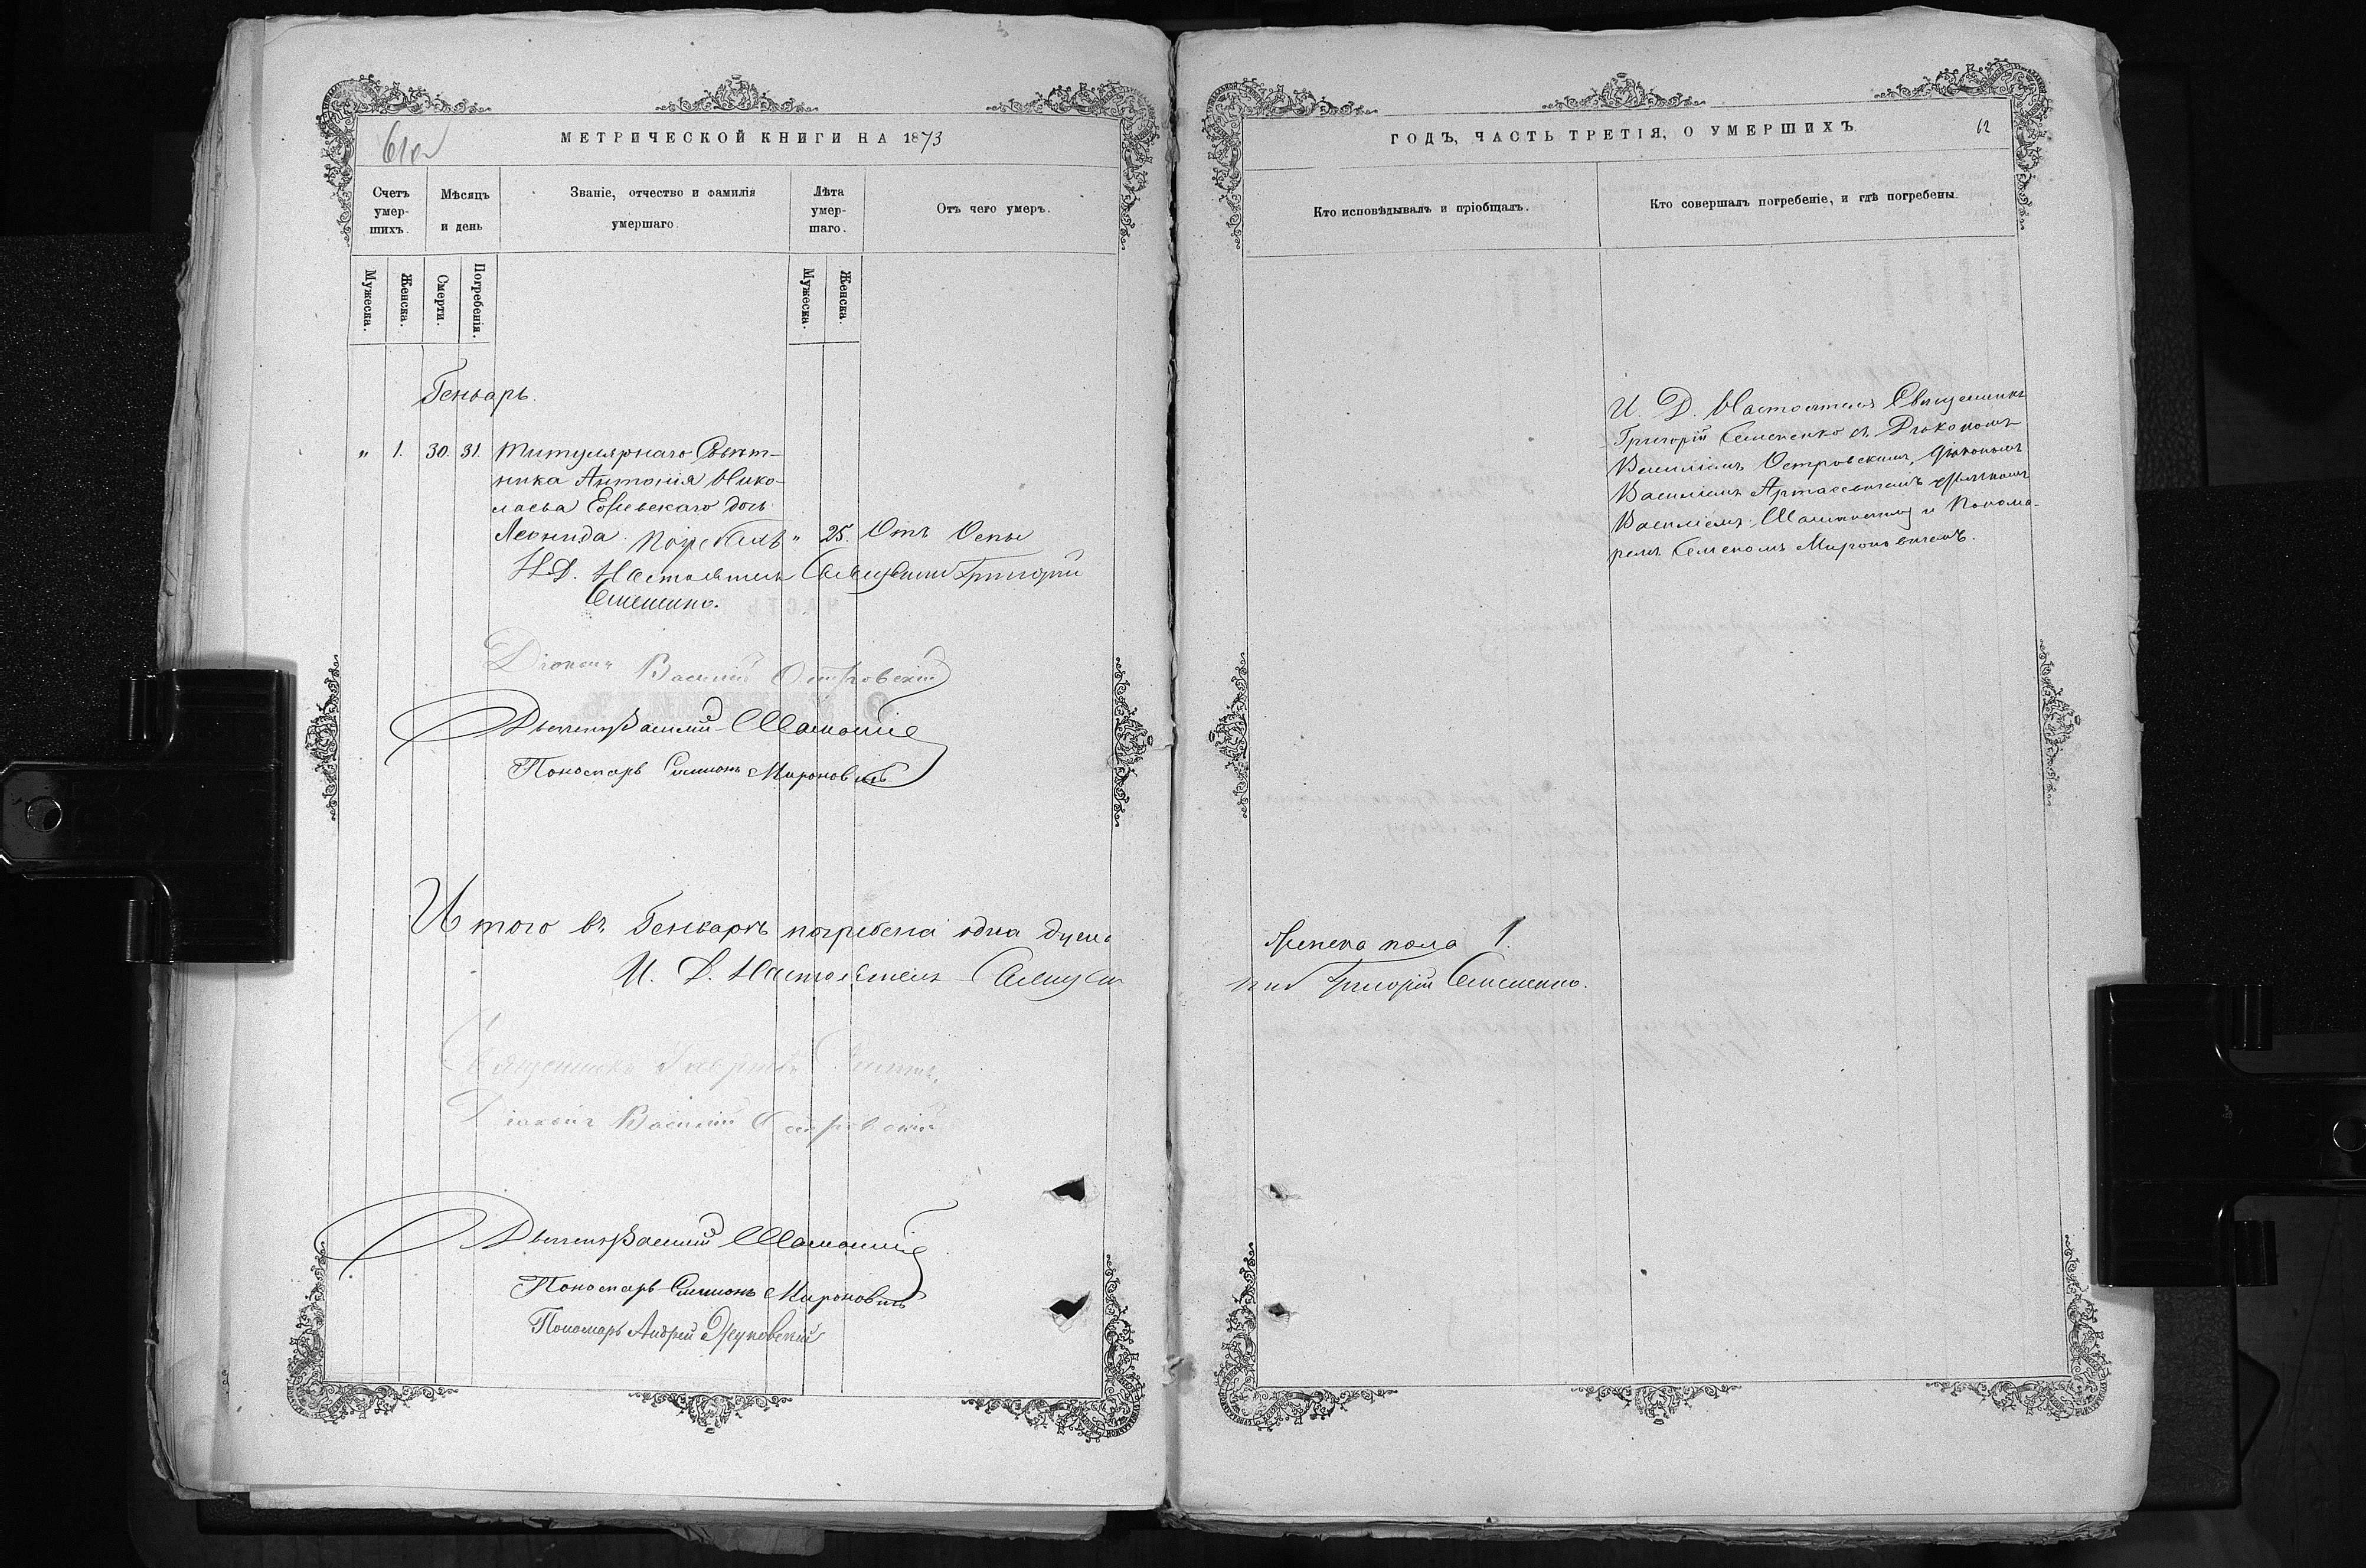 61об
МЕТРИЧЕСКОЙ КНИГИ НА 1873
Счетъ умер-шихъ.
Мѣсяцъ и день
Званіе, отчество и фамилія умершаго.
Лѣта умер-шаго.
Отъ чего умеръ.
Мужеска.
Женска.
Смерти.
Погребенія.
Мужеска.
Женска.
Генварь.
" 1. 30. 31. Титулярнаго Совѣт-
ника Антонія Нико-
лаева дочь
Леонида " 25. Отъ Оспы
И. Д. Настоятеля Священникъ Григорій
Семененко.
Діаконъ Василій Островскій
Дьячекъ Василій
Пономарь Симеонъ Мироновичъ
Итого въ Генварѣ погребена одна душа
И. Д. Настоятеля Священ
Священникъ
Діаконъ Василій Островскій
Дьячекъ Василій
Пономарь Симеонъ Мироновичъ
Пономарь Андрей Жуковскій
ГОДЪ, ЧАСТЬ ТРЕТІЯ, О УМЕРШИХЪ.
62
Кто исповѣдывалъ и пріобщалъ.
Кто совершалъ погребеніе, и гдѣ погребены.
И. Д. Настоятеля Священникъ
Григорій Семененко съ Діакономъ
Василіемъ Островскимъ, Діакономъ
Василіемъ Дьячкомъ
Василіемъ и Понома-
ремъ Семеномъ Мироновичемъ.
Женска пола 1.
никъ Григорій Семененко.